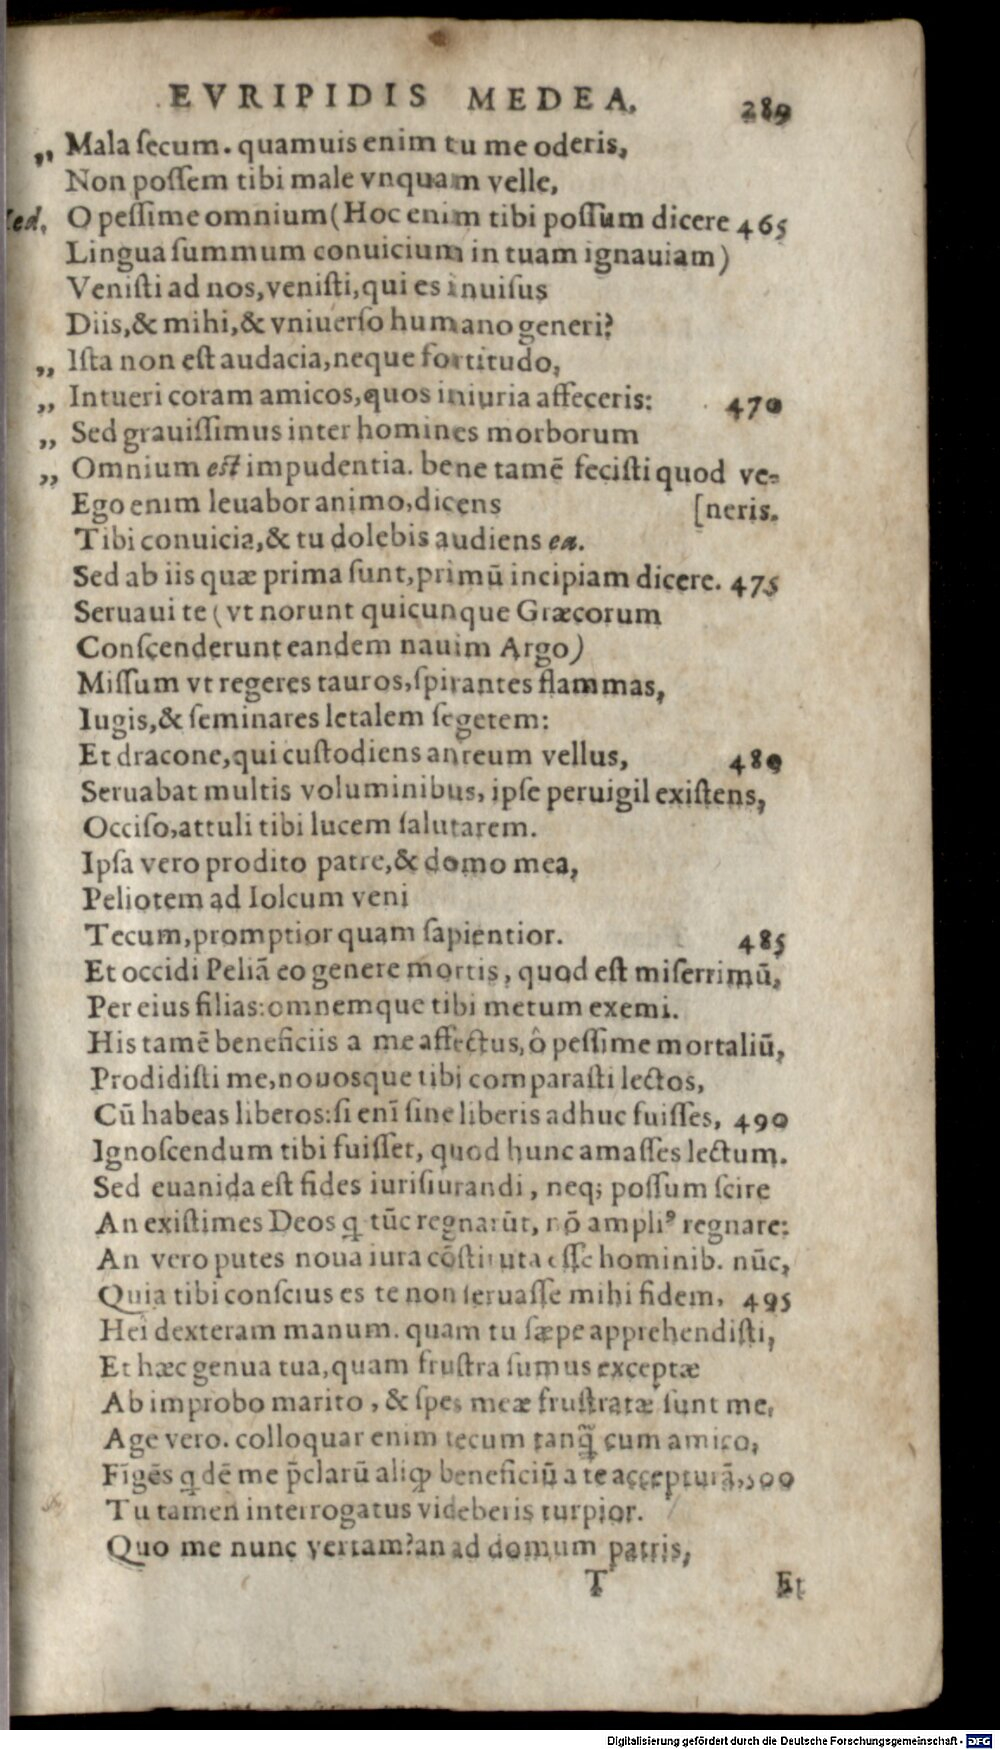 EVRIPIDIS MEDEA. 289
„ Mala ſecum. quamuis enim tu me oderis,
Non poſſem tibi male vnquam velle,
ed. O peſſime omnium (Hoc enim tibi poſſum dicere 465
Lingua ſummum conuicium in tuam ignauiam)
Veniſti ad nos, veniſti, qui es inuiſus
Diis, & mihi, & vniuerſo humano generi?
„ Iſta non eſt audacia, neque fortitudo,
„ Intueri coram amicos, quos iniuria affeceris: 470
„ Sed grauiſſimus inter homines morborum
„ Omnium eſt impudentia. bene tamē feciſti quod ve-
Ego enim leuabor animo, dicens [neris.
Tibi conuicia, & tu dolebis audiens ea.
Sed ab iis quæ prima ſunt, primū incipiam dicere. 475
Seruaui te (vt norunt quicunque Græcorum
Conſcenderunt eandem nauim Argo)
Miſſum vt regeres tauros, ſpirantes flammas,
Iugis, & ſeminares letalem ſegetem:
Et dracone, qui cuſtodiens aureum vellus, 480
Seruabat multis voluminibus, ipſe peruigil exiſtens,
Occiſo, attuli tibi lucem ſalutarem.
Ipſa vero prodito patre, & domo mea,
Peliotem ad Iolcum veni
Tecum, promptior quam ſapientior. 485
Et occidi Peliā eo genere mortis, quod eſt miſerrimū,
Per eius filias: omnemque tibi metum exemi.
His tamē beneficiis a me affectus, ô peſſime mortaliū,
Prodidiſti me, nouosque tibi comparaſti lectos,
Cū habeas liberos: ſi enī ſine liberis adhuc fuiſſes, 490
Ignoſcendum tibi fuiſſet, quod hunc amaſſes lectum.
Sed euanida eſt fides iurisiurandi, neq; poſſum ſcire
An exiſtimes Deos q̄ tūc regnarūt, nō ampli⁹ regnare:
An vero putes noua iura cōſtituta eſſe hominib. nūc,
Quia tibi conſcius es te non ſeruaſſe mihi fidem, 495
Hei dexteram manum. quam tu ſæpe apprehendiſti,
Et hæc genua tua, quam fruſtra ſumus exceptæ
Ab improbo marito, & ſpes meæ fruſtratæ ſunt me,
Age vero. colloquar enim tecum tanq̄ cum amico,
Fīgēs q dē me p̄clarū aliqđ beneficiū a te accepturā, 500
Tu tamen interrogatus videberis turpior.
Quo me nunc vertam? an ad domum patris,
T Et
Digitalisierung gefördert durch die Deutsche Forschungsgemeinschaft - DFG